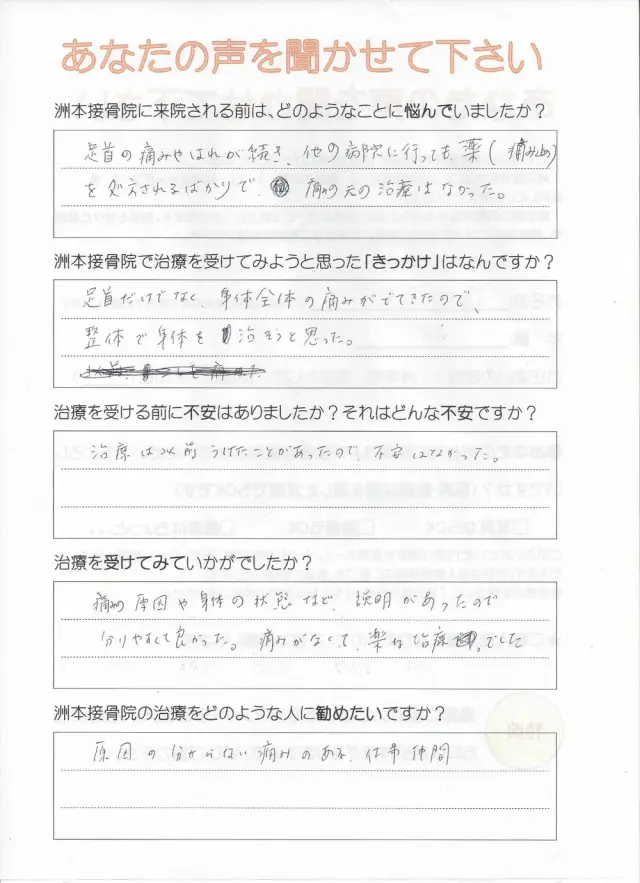 あなたの声を聞かせて下さい
洲本接骨院に来院される前は、どのようなことに悩んでいましたか？
足首の痛みやはれが続き、他の病院に行っても、薬(痛み止め)
を処方されるばかりで、痛みの元の治療はなかった。
洲本接骨院で治療を受けてみようと思った「きっかけ」はなんですか？
足首だけでなく、身体全体の痛みがでてきたので、
整体で身体を治そうと思った。
治療を受ける前に不安はありましたか？それはどんな不安ですか？
治療は以前うけたことがあったので、不安はなかった。
治療を受けてみていかがでしたか？
痛みの原因や身体の状態など、説明があったので
分りやすくて良かった。痛みがなくて、楽な治療でした
洲本接骨院の治療をどのような人に勧めたいですか？
原因の分からない痛みのある、仕事仲間